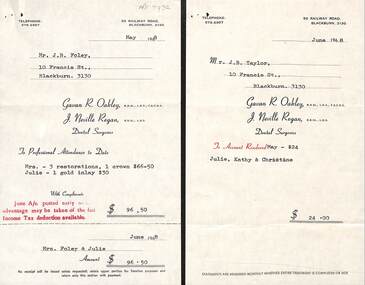 TELEPHONE:
50 RAILWAY ROAD,
BLACKBURN, 3130
May 1968
Mr. J.B. Foley,
10 Francis St.,
Blackburn. 3130
Gavan R. Oakley,
J. Neville Regan,
Dental Surgeons
To Professional Attendance to Date
Mrs. - 3 restorations, 1 crown $66-50
Julie - 1 gold inlay $30
With Compliments
June A/c posted early so
advantage may be taken of the last
Income Tax deduction available.
$ 96.50
June 1968
Mrs. Foley & Julie
Amount $ 96-50
TELEPHONE:
50 RAILWAY ROAD,
BLACKBURN, 3130
June 1968
Mr. J.B. Taylor,
10 Francis St.,
Blackburn. 3130
Gavan R. Oakley,
J. Neville Regan,
Dental Surgeons
To Account Rendered/May - $24
Julie, Kathy & Christine
$ 24-00